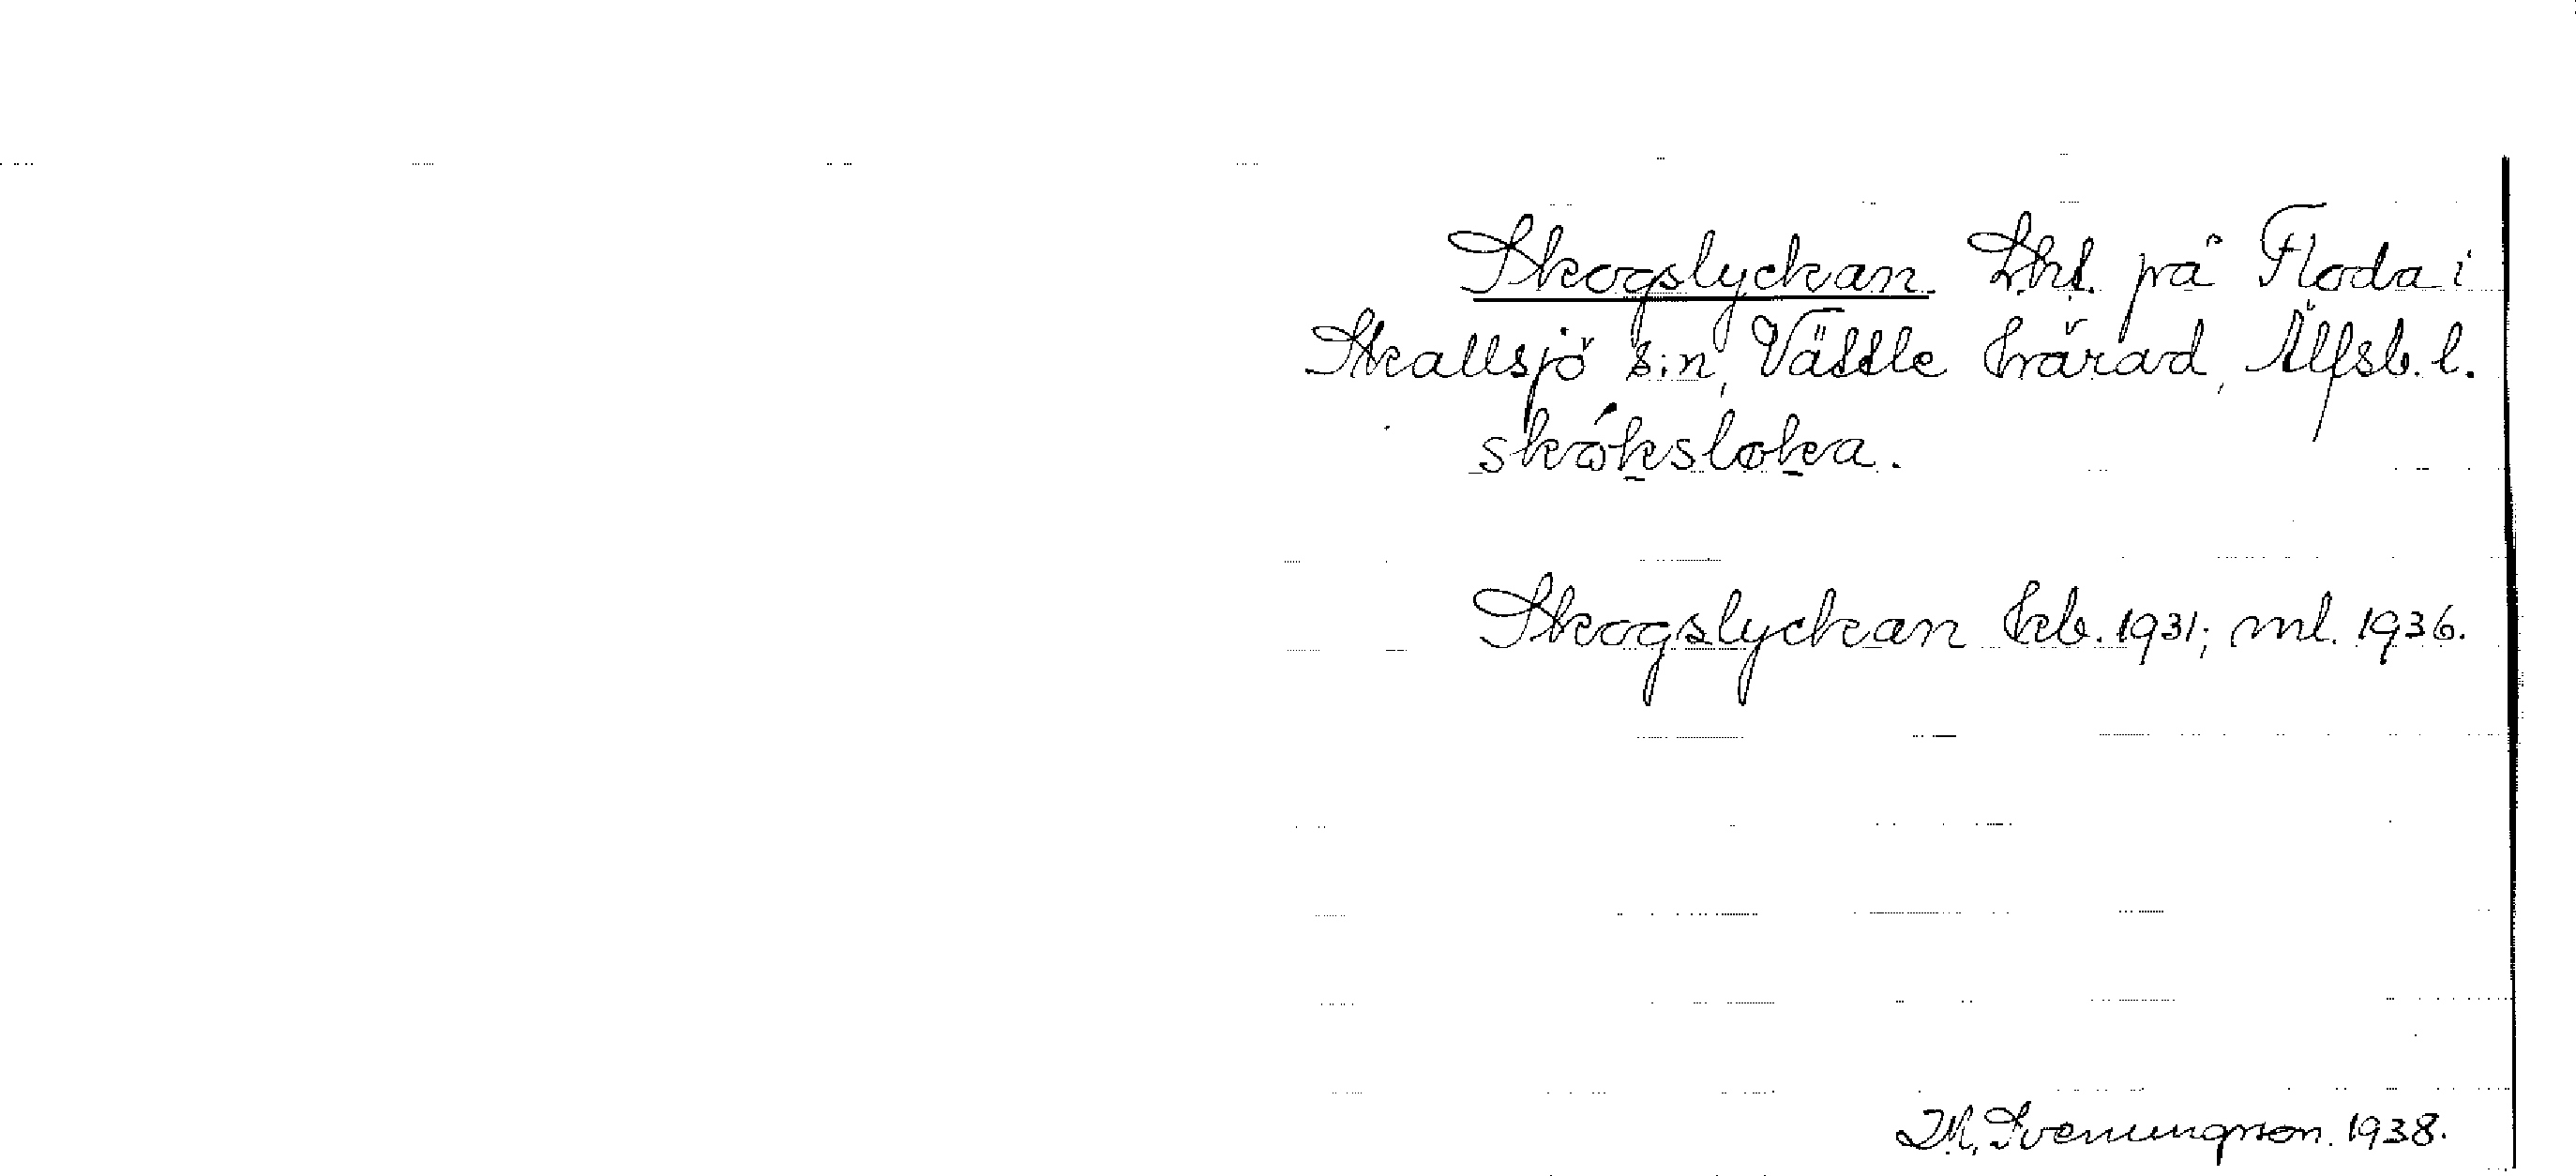 Skogslyckan. Lht. på Floda i
Skallsjö s:n, Vättle härad, Älfsb. l.
skóksloka.
Skogslyckan kb. 1931; ml. 1936.
M. Svenungsson. 1938.